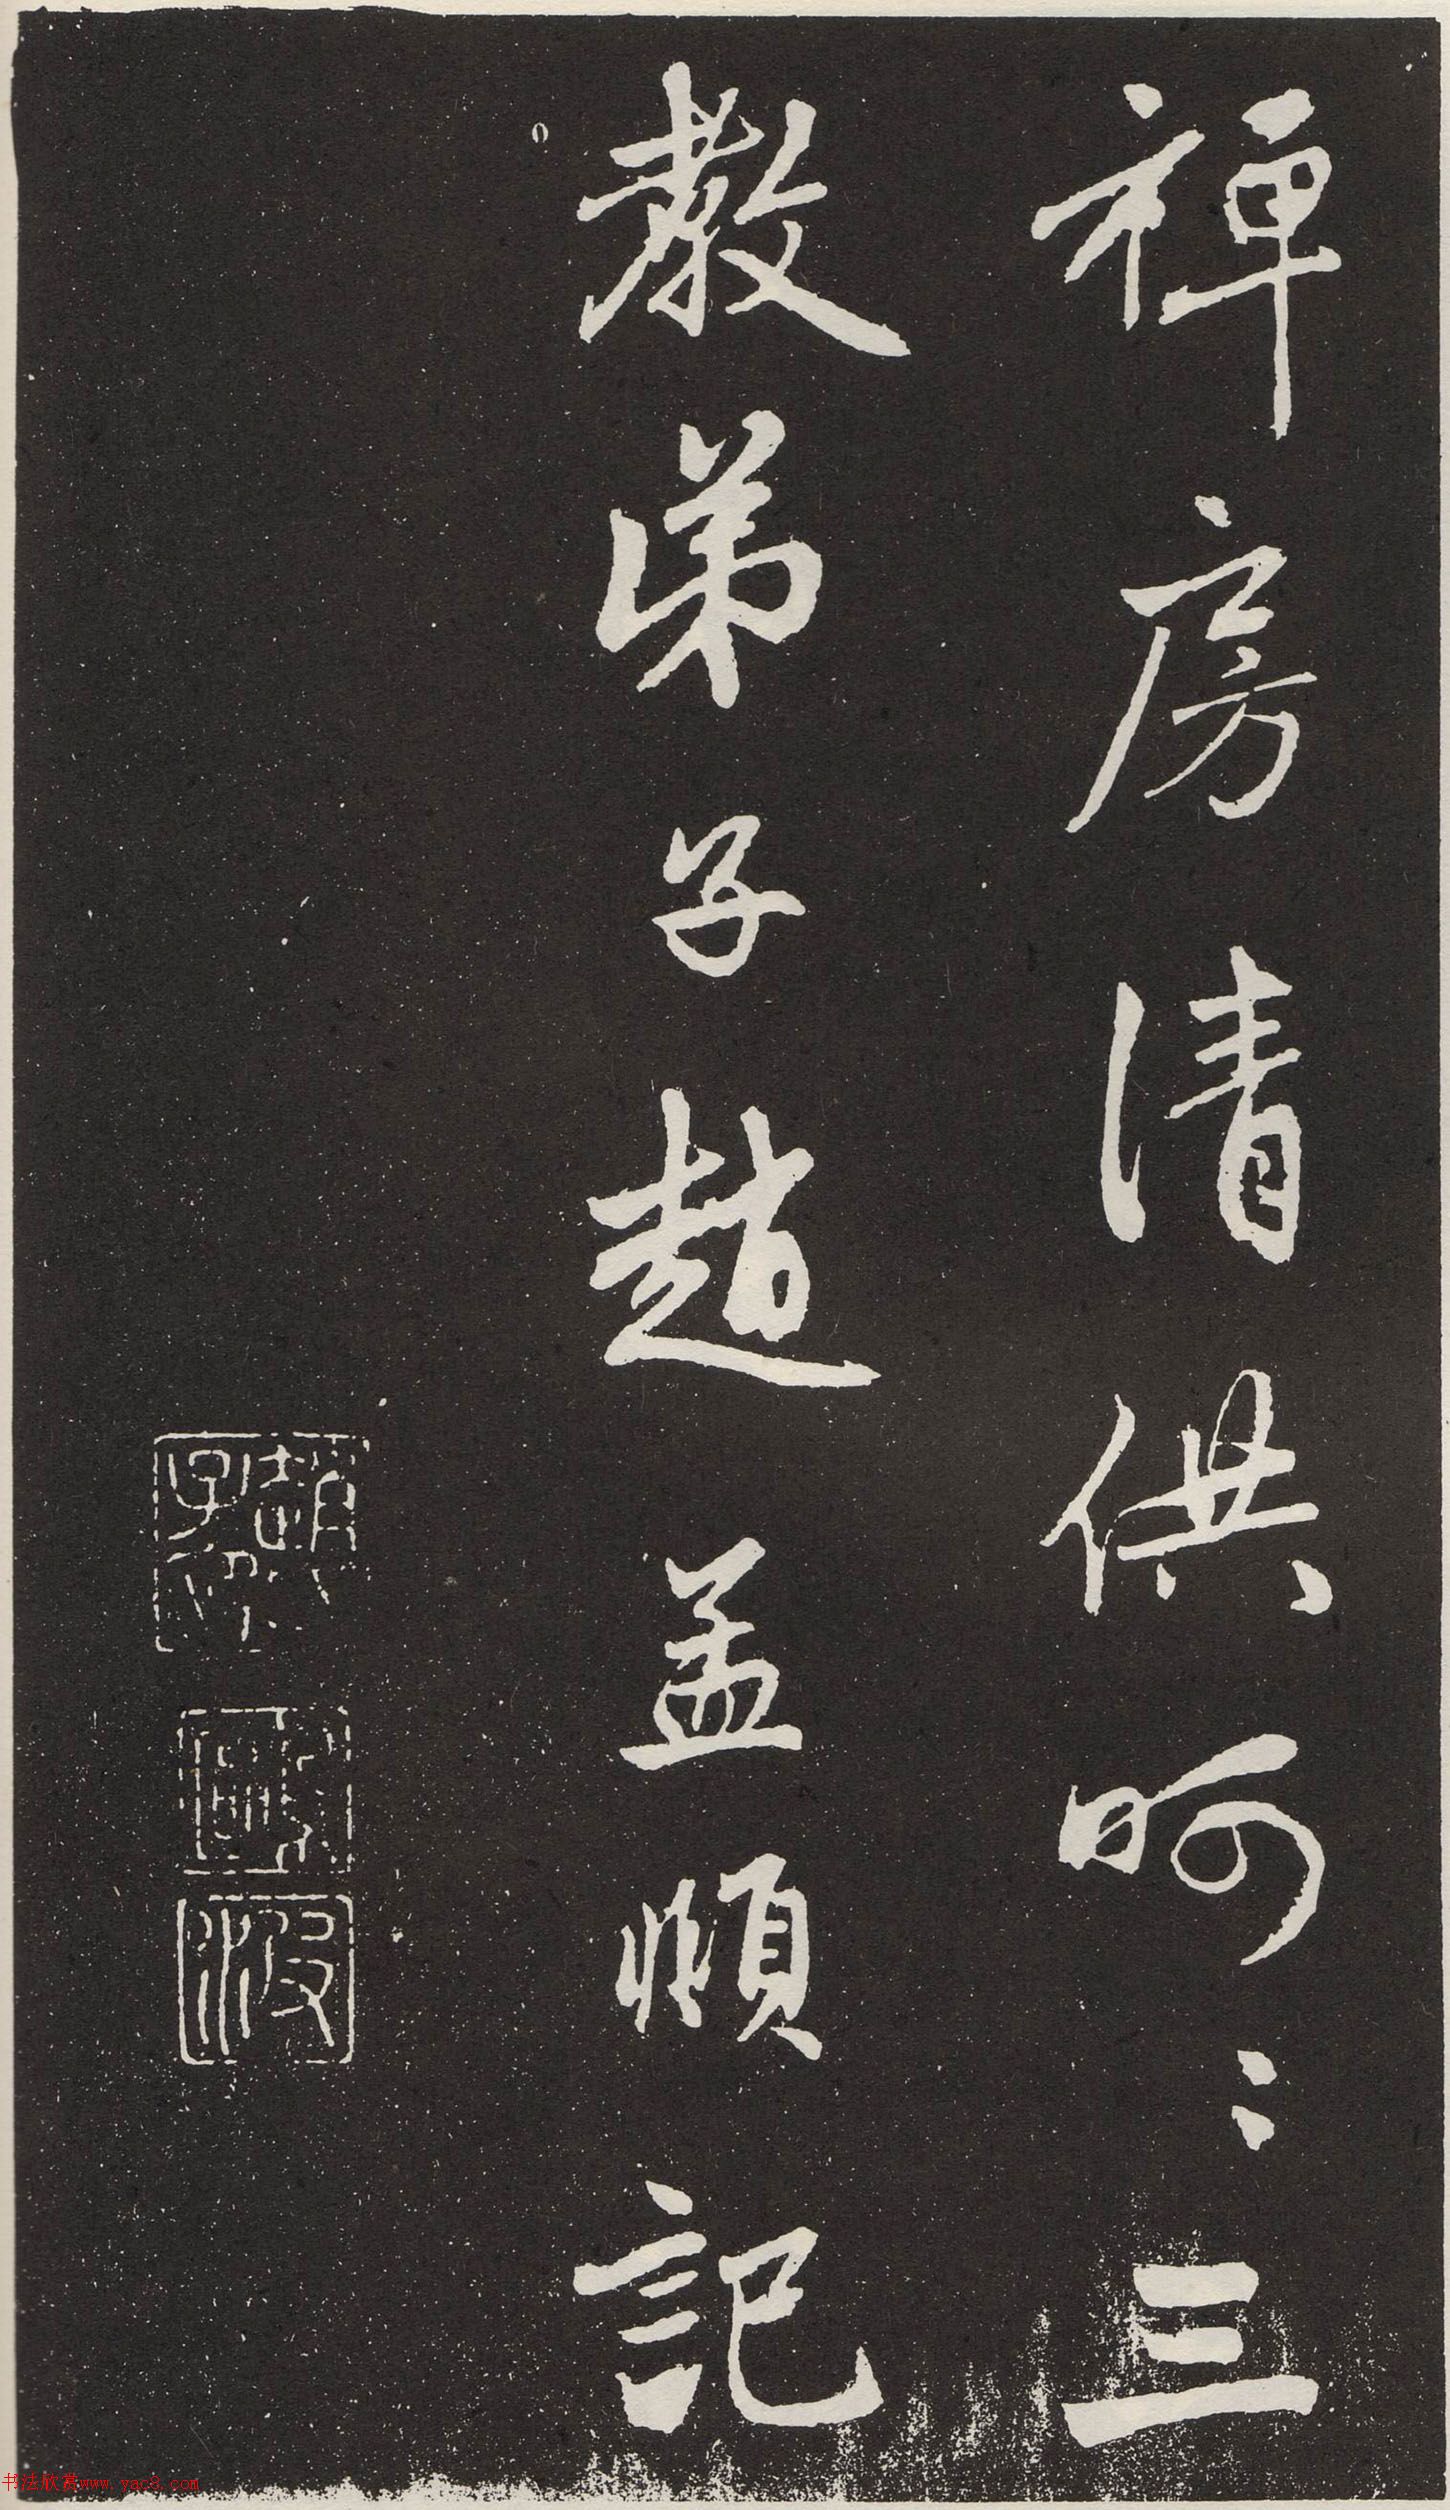 禪房清供呵〻三
教弟子趙孟頫記
趙子印
水
书法欣赏www.yac8.com